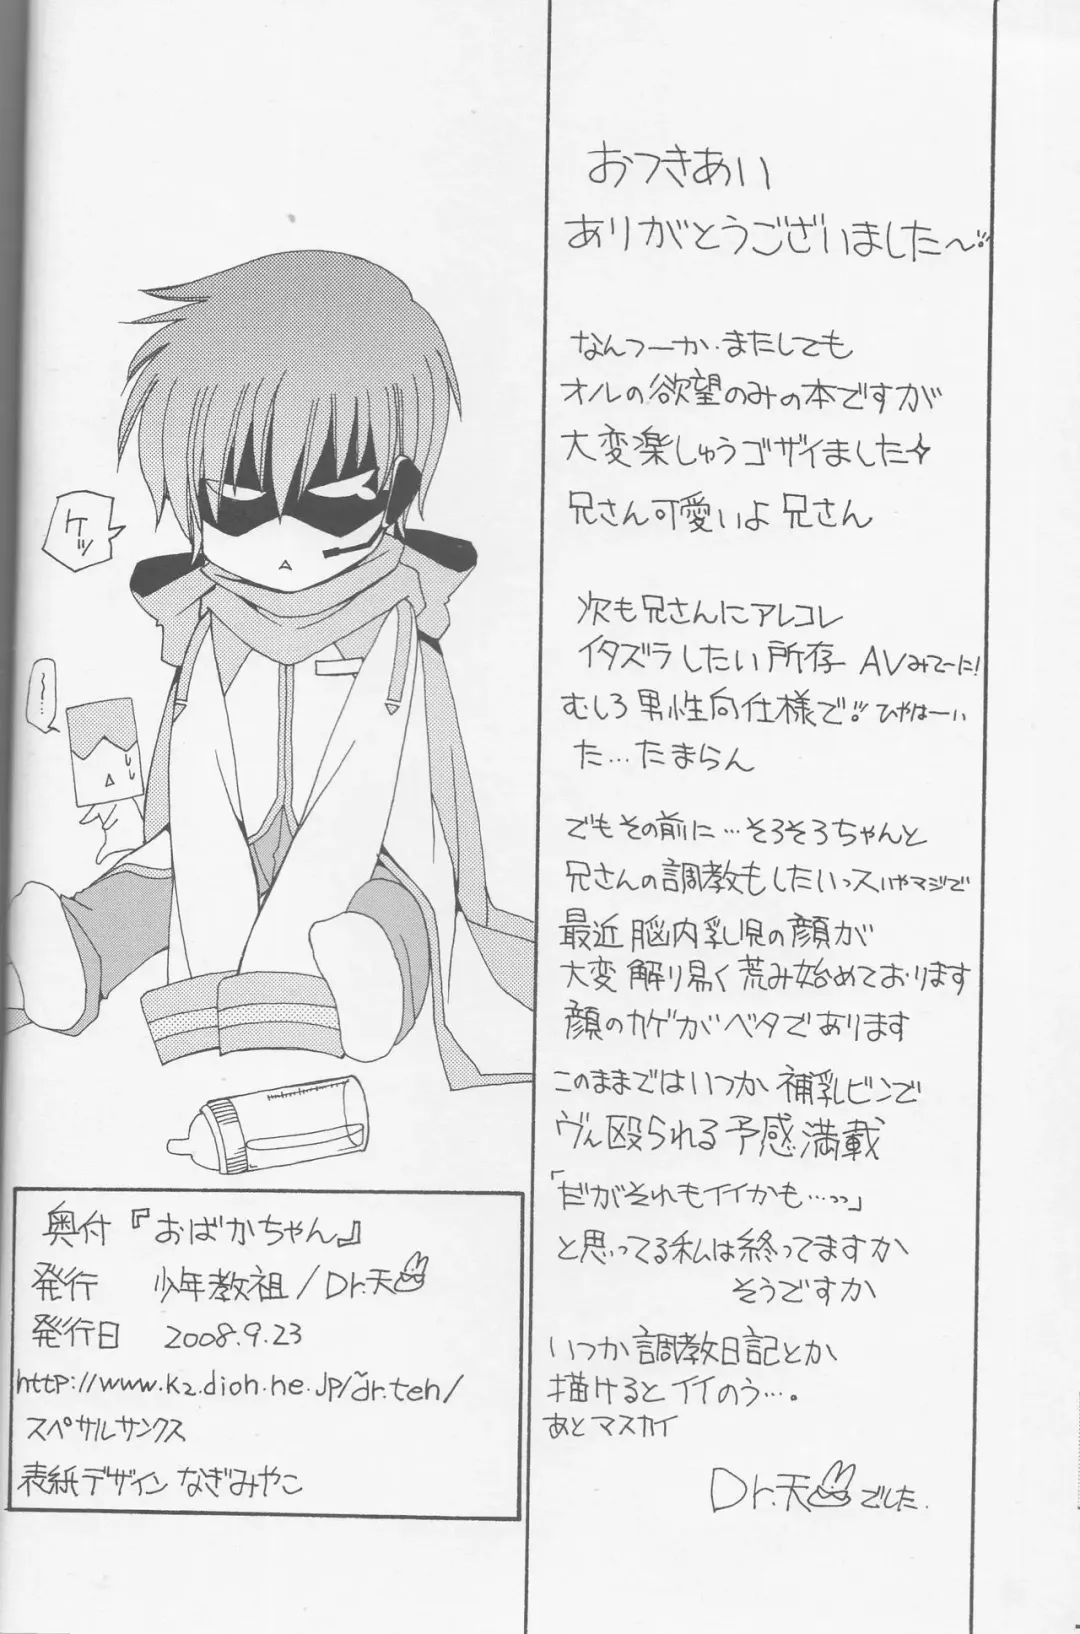 おつきあい
ありがとうございました〜

なんつーか・またしても
オルの欲望のみの本ですが
大変楽しゅうゴザイました☆
兄さん可愛いよ兄さん

次も兄さんにアレコレ
イタズラしたい所存 AVみてーに!
むしろ男性向仕様で!! ひゃはーい
た…たまらん

でもその前に…そろそろちゃんと
兄さんの調教もしたいっスいやマジで
最近脳内乳児の顔が
大変解り易く荒み始めております
顔のカゲがベタであります
このままではいつか補乳ビンで
ヴん殴られる予感満載
「だがそれもイイかも…っっ」
と思ってる私は終ってますか
そうですか

いつか調教日記とか
描けるとイイのう…。
あとマスカイ

Dr.天でした.

ケッ
……
奥付『おばかちゃん』
発行 少年教祖/Dr.天
発行日 2008.9.23
http://www.k2.dion.ne.jp/~dr.ten/
スペサルサンクス
表紙デザイン なぎみやこ